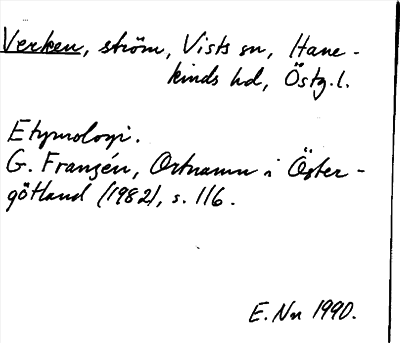 Verken, ström, Vists sn, Hane-
kinds hd, Östg.l.
Etymologi.
G. Franzén, Ortnamn i Öster-
götland (1982), s. 116.
E. Nn 1990.